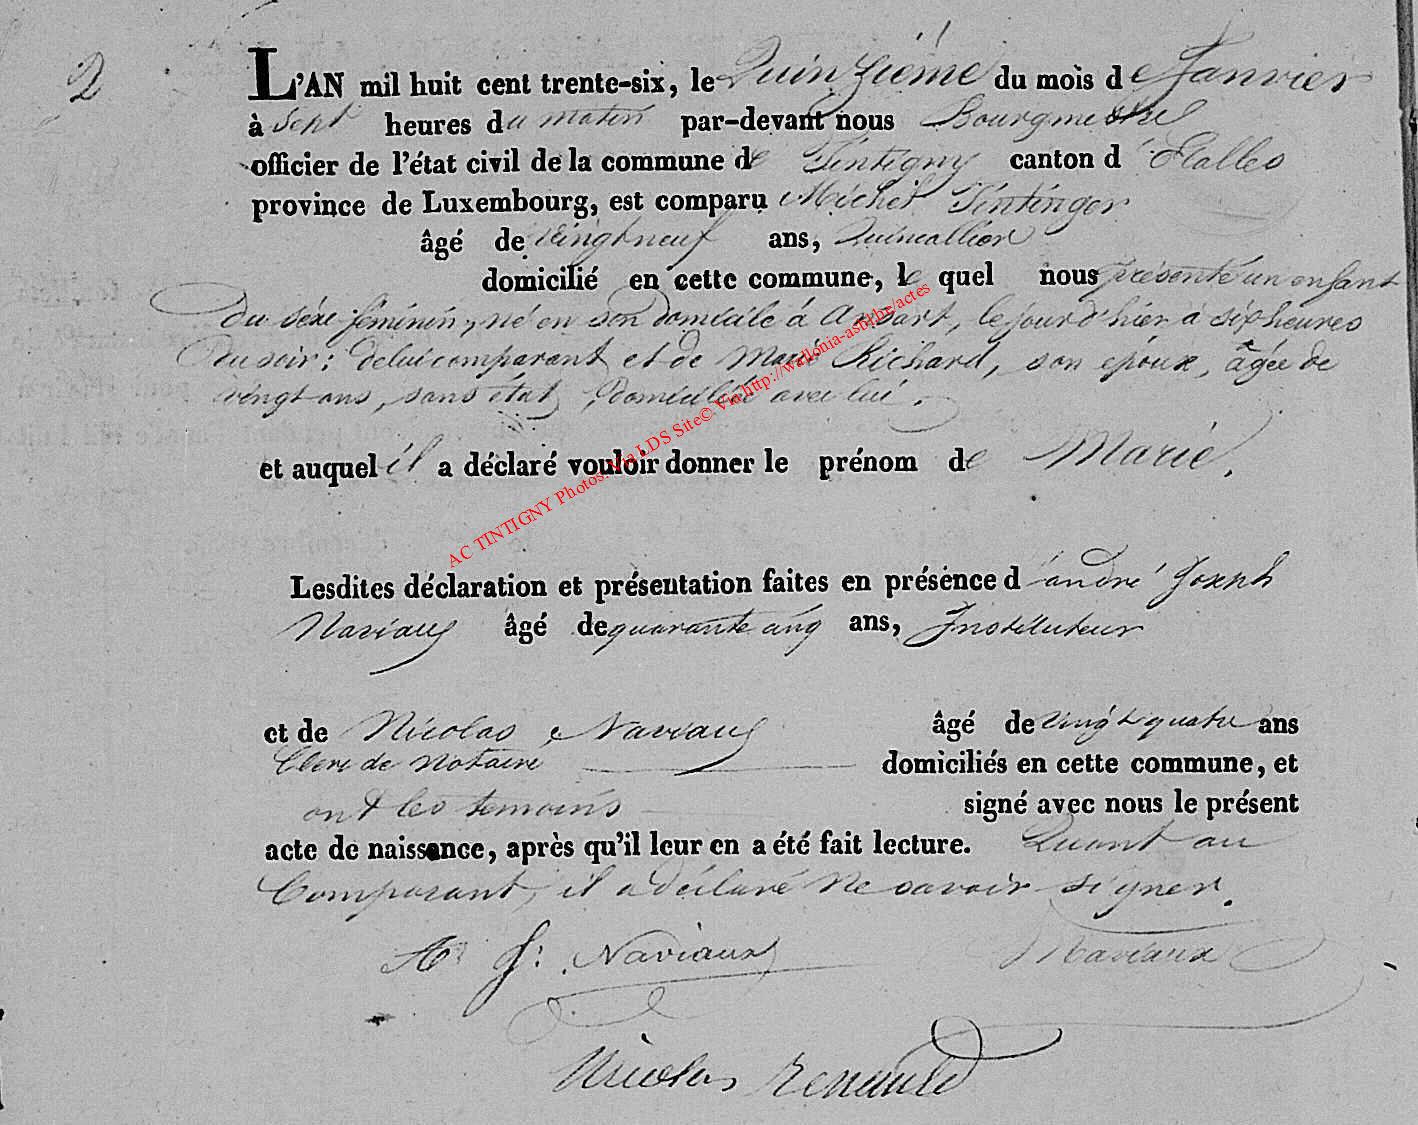 2
L'AN mil huit cent trente-six, le Quinzième du mois de Janvier
à Sept heures du matin par-devant nous Bourgmestre
officier de l'état civil de la commune de Tintigny canton d'Etalles
province de Luxembourg, est comparu Michel Tintinger
âgé de vingt neuf ans, Quincallier
domicilié en cette commune, le quel nous présenté un enfant
du séxe féminin, né en son domicile à Ansart, le jour d'hier à six heures
du soir: de lui comparant et de Marie Richard, son épouse, âgée de
vingt ans, sans état, domiciliée avec lui.
et auquel il a déclaré vouloir donner le prénom de Marie.
AC TINTIGNY Photos: Via LDS Site© Via http://wallonia-asbl.be/actes
Lesdites déclaration et présentation faites en présence d'andré Joseph
Naviaux âgé de quarante cinq ans, Instituteur
et de Nicolas Naviaux âgé de vingt quatre ans
Clerc de Notaire domiciliés en cette commune, et
ont les temoins signé avec nous le présent
acte de naissance, après qu'il leur en a été fait lecture. Quant au
Comparant, il a déclaré ne savoir signer.
A. J. Naviaux Naviaux
Nicolas Renauld